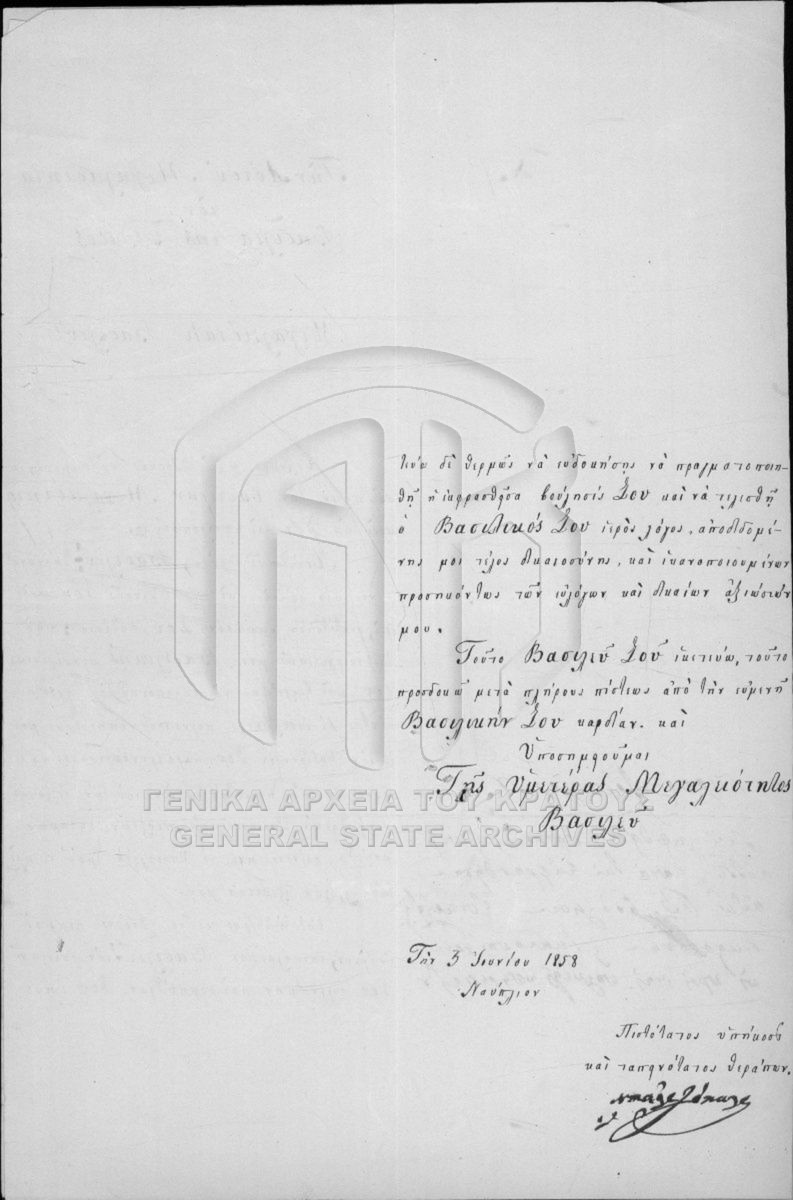 τεύω δὲ θερμῶς νὰ εὐδοκήσῃς νὰ πραγματοποιη-
θῇ ἡ ἐκφρασθεῖσα βούλησίς Σου καὶ νὰ τελεσθῇ
ὁ Βασιλικός Σου ἱερὸς λόγος, ἀποδιδομέ-
νης μοι τέλος δικαιοσύνης, καὶ ἱκανοποιουμένων
προσηκόντως τῶν εὐλόγων καὶ δικαίων ἀξιώσεών
μου.
Τοῦτο Βασιλεῦ Σοῦ ἱκετεύω, τοῦτο
προσδοκῶ μετὰ πλήρους πίστεως ἀπὸ τὴν εὐμενῆ
Βασιλικήν Σου καρδίαν. καὶ
Ὑποσημειοῦμαι
Τῆς Ὑμετέρας Μεγαλειότητος
Βασιλεῦ
ΓΕΝΙΚΑ ΑΡΧΕΙΑ ΤΟΥ ΚΡΑΤΟΥΣ
GENERAL STATE ARCHIVES
Τὴν 3 Ἰουνίου 1858
Ναύπλιον
Πιστότατος ὑπήκοος
καὶ ταπεινότατος θεράπων.